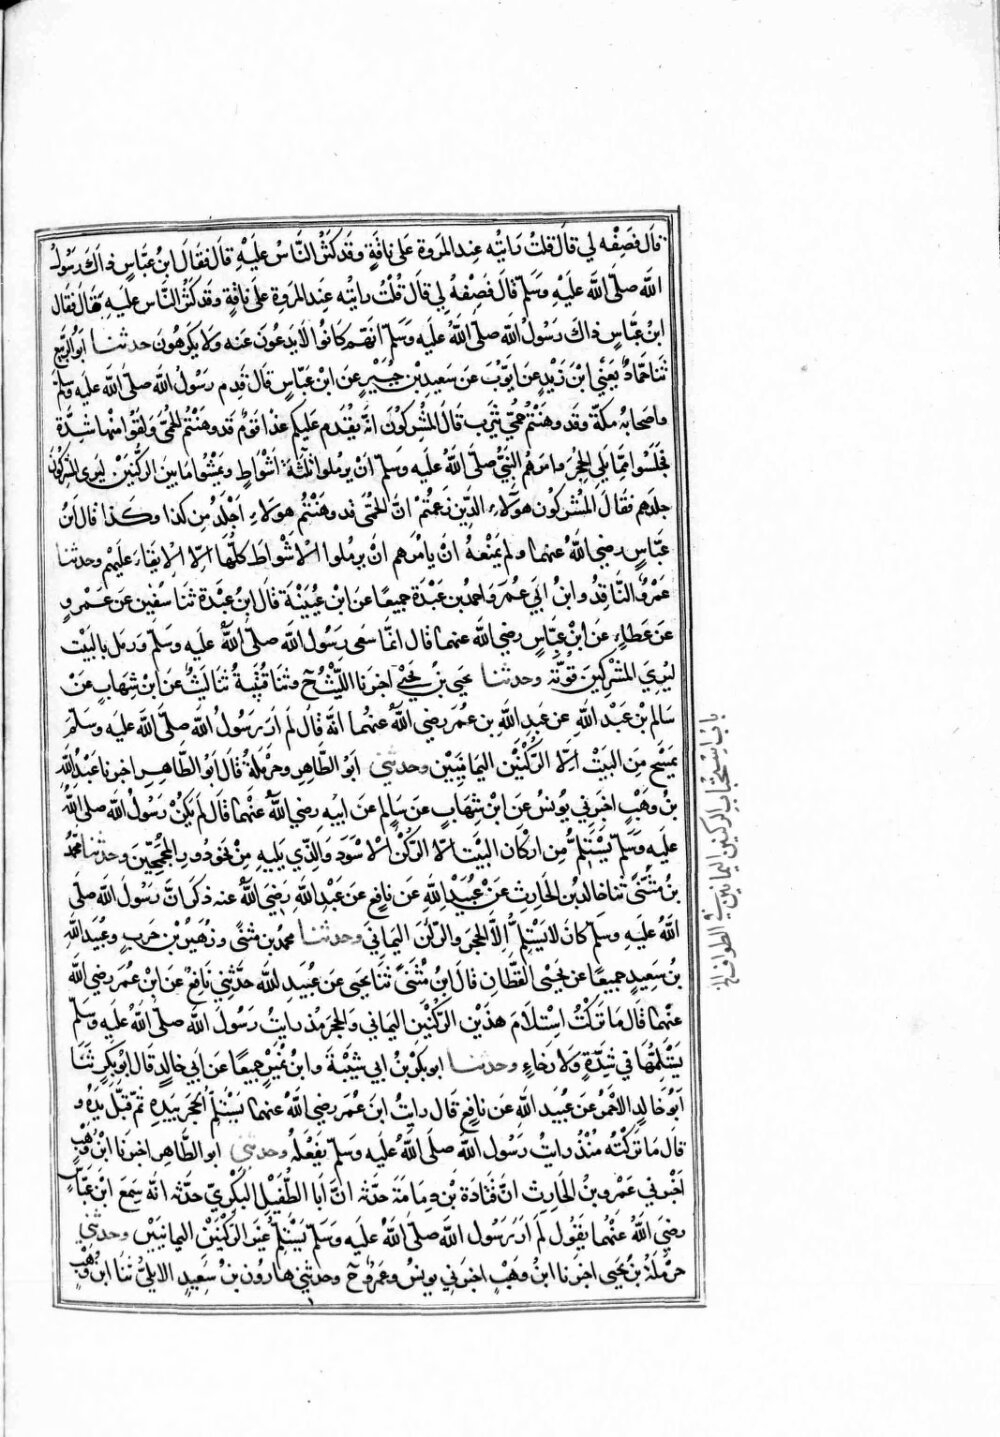 قال فصفه لي قال قلت رايته عند المروة على ناقة وقد كثر الناس عليه قال فقال ابن عباس ذاك رسول
الله صلى الله عليه وسلم قال فصفه لي قال قلت رايته عند المروة على ناقة وقد كثر الناس عليه فقال فقال
ابن عباس ذاك رسول الله صلى الله عليه وسلم انهم كانوا لا يدعون عنه ولا يكرهون حدثنا ابو الربيع
ثنا حماد يعني ابن زيد عن ايوب عن سعيد بن جبير عن ابن عباس قال قدم رسول الله صلى الله عليه وسلم
واصحابه مكة وقد وهنتم حمى يثرب قال المشركون انه يقدم عليكم غدا قوم قد وهنتم الحمى ولقوا منها شدة
فجلسوا مما يلي الحجر وامرهم النبي صلى الله عليه وسلم ان يرملوا ثلثة اشواط ويمشوا ما بين الركنين ليرى المشركون
جلدهم فقال المشركون هولاء الذين زعمتم ان الحمى قد وهنتم هولاء اجلد من كذا وكذا قال ابن
عباس رضي الله عنهما ولم يمنعه ان يامرهم ان يرملوا الاشواط كلها الا الابقاء عليهم وحدثنا
عمرو الناقد وابن ابي عمر واحمد بن عبدة جميعا عن ابن عيينة قال ابن عبدة ثنا سفين عن عمرو
عن عطاء عن ابن عباس رضي الله عنهما قال انما سعى رسول الله صلى الله عليه وسلم ورمل بالبيت
ليري المشركين قوته وحدثنا يحيى بن يحيى اخبرنا الليث ح وثنا قتيبة ثنا ليث عن ابن شهاب عن
سالم بن عبد الله عن عبد الله بن عمر رضي الله عنهما انه قال لم ار رسول الله صلى الله عليه وسلم
يمسح من البيت الا الركنين اليمانيين وحدثني ابو الطاهر وحرملة قال ابو الطاهر اخبرنا عبد الله
بن وهب اخبرني يونس عن ابن شهاب عن سالم عن ابيه رضي الله عنهما قال لم يكن رسول الله صلى الله
عليه وسلم يستلم من اركان البيت الا الركن الاسود والذي يليه من نحو دور الجمحيين وحدثنا محمد
بن مثنى ثنا خالد بن الحارث عن عبيد الله عن نافع عن عبد الله رضي الله عنه ذكر ان رسول الله صلى
الله عليه وسلم كان لا يستلم الا الحجر والركن اليماني وحدثنا محمد بن مثنى وزهير بن حرب وعبيد الله
بن سعيد جميعا عن يحيى القطان قال ابن مثنى ثنا يحيى عن عبيد الله حدثني نافع عن ابن عمر رضي الله
عنهما قال ما تركت استلام هذين الركنين اليماني والحجر مذ رايت رسول الله صلى الله عليه وسلم
يستلمهما في شدة ولا رخاء وحدثنا ابو بكر بن ابي شيبة وابن نمير جميعا عن ابي خالد قال ابو بكر ثنا
ابو خالد الاحمر عن عبيد الله عن نافع قال رايت ابن عمر رضي الله عنهما يستلم الحجر بيده ثم قبل يده و
قال ما تركته منذ رايت رسول الله صلى الله عليه وسلم يفعله وحدثني ابو الطاهر اخبرنا ابن وهب
اخبرني عمرو بن الحارث ان قتادة بن دعامة حدثه ان ابا الطفيل البكري حدثه انه سمع ابن عباس
رضي الله عنهما يقول لم ار رسول الله صلى الله عليه وسلم يستلم غير الركنين اليمانيين وحدثني
حرملة بن يحيى اخبرنا ابن وهب اخبرني يونس وعمرو ح وحدثني هارون بن سعيد الايلي ثنا ابن وهب
باب استحباب الركنين اليمانيين في الطواف